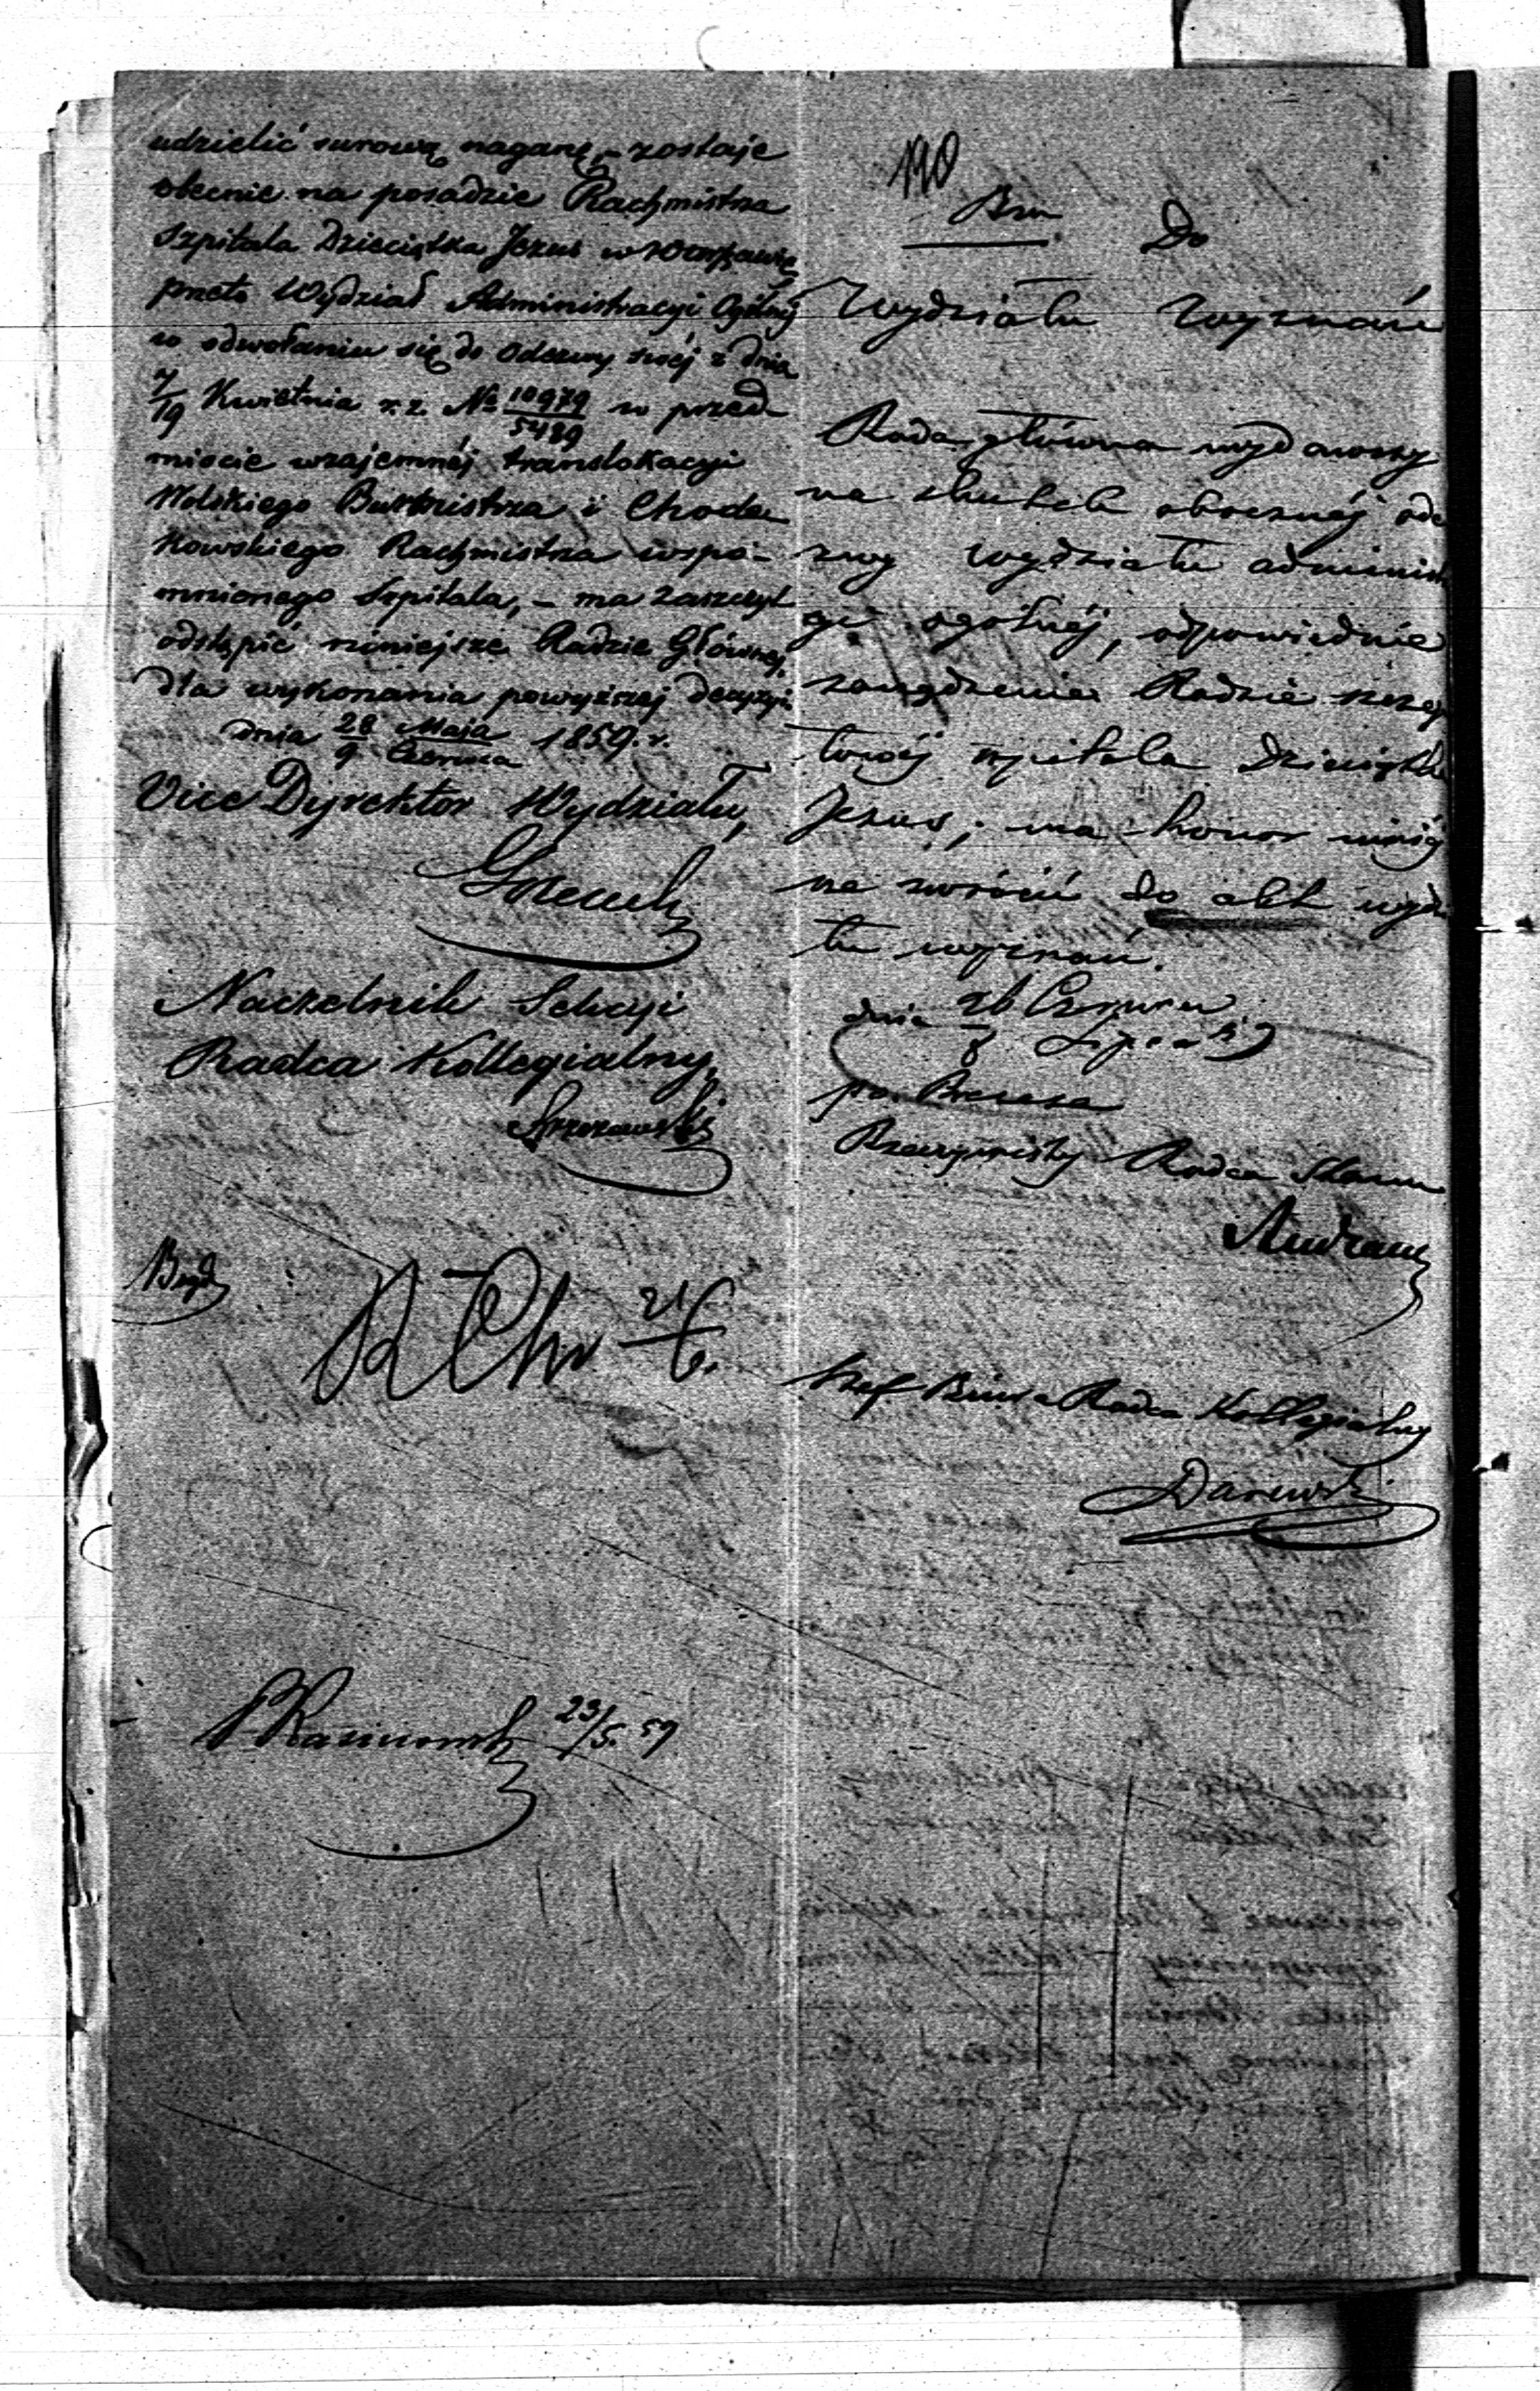 udzielić surową naganę, – zostaje
obecnie na posadzie Rachmistrza
Szpitala Dzieciątka Jezus w Warszawie
przeto Wydział Administracyi Ogólnéj
w odwołaniu się do odezwy swéj z dnia
7/19 Kwietnia r.z. No 10979/5489 w przed-
miocie wzajemnéj translokacyi
Wolskiego Burmistrza i Choda-
kowskiego Rachmistrza wspo-
mnionego Szpitala, – ma zaszczyt
odstąpić niniejsze Radzie Głównej,
dla wykonania powyższej decyzyi
dnia 28 Maja/9 Czerwca 1859 r.
Vice Dyrektor Wydziału,
Naczelnik Sekcyi
Radca Kollegialny,
23/5 59
Do
Wydziału Wyznań
Rada główna wydawszy
na skutek obocznéj ode
zwy wydziału administra
cyi ogólnéj, odpowiednie
zarządzenie Radzie szczegó
łowéj szpitala Dzieciątka
Jezus, ma honor niniéj
sze zwrócić do akt wydzia
łu wyznań.
dnia 26 Czerwca/8 Lipca
po. Prezesa
Rzeczywisty Radca Stanu
Szef Biura Radca Kollegialny